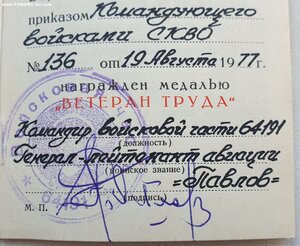 приказом Командующего
войсками СКВО
№ 136 от 19 Августа 1977 г.
награжден медалью
"ВЕТЕРАН ТРУДА"
Командир войсковой части 64191
(должность)
Генерал-лейтенант авиации
(воинское звание)
=Павлов=
(подпись)
М. П.
64191